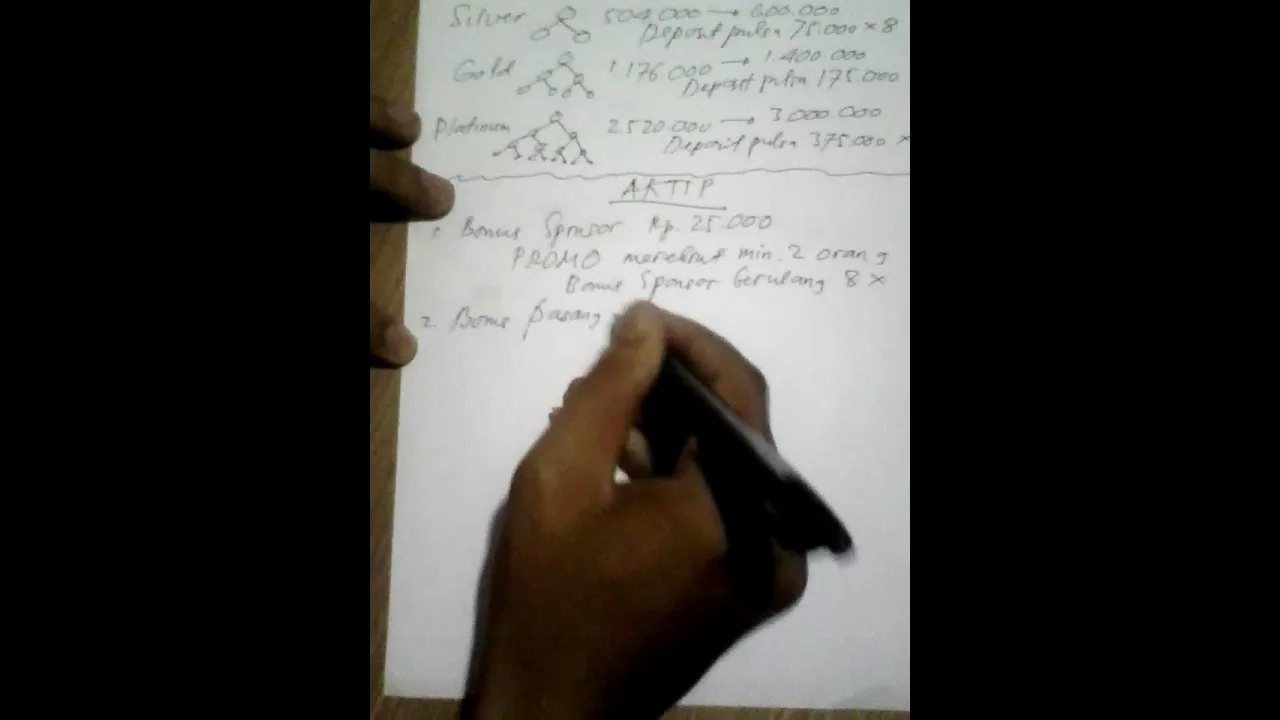 Silver 504.000 → 600.000
Deposit pulsa 75.000 x 8
Gold 1.176.000 → 1.400.000
Deposit pulsa 175.000
Platinum 2.520.000 → 3.000.000
Deposit pulsa 375.000 x
AKTIP
1. Bonus Sponsor Rp. 25.000
PROMO merekrut min. 2 orang
Bonus Sponsor berulang 8 x
2. Bonus Pasang